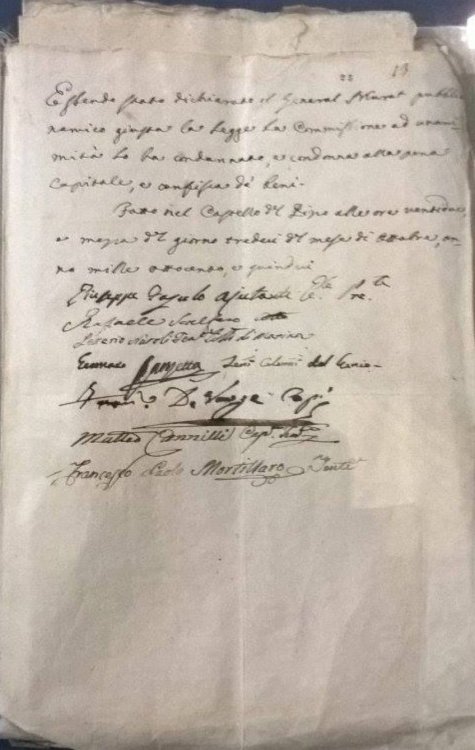 23 13
Essendo stato dichiarato il General Murat pubblico
nemico giusta la Legge la Commissione ad unani-
mità lo ha condannato, e condanna alla pena
capitale, e confisca de' beni-
Fatto nel Castello del Pizzo alle ore ventidue
e mezza del giorno tredici del mese di Ottobre, an-
no mille ottocento, e quindici
Giuseppe Fasulo ajutante Pre.te
Raffaele Scalfaro
Litterio Natoli Ten.te di Marina
Gennaro Lanzetta Ten.te Colonn: del Genio-
De Vouge Cap.
Matteo Cannilli Cap.
Francesco Paolo Mortillaro Tente